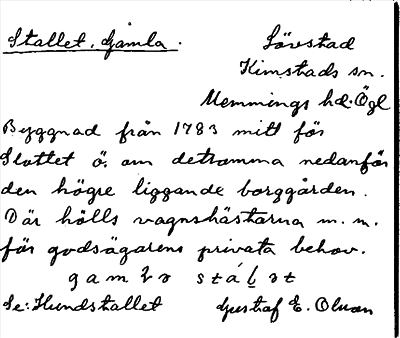 Stallet, Gamla.
Lövstad
Kimstads sn.
Memmings hd. Ögl
Byggnad från 1783 mitt för
Slottet ö. om detsamma nedanför
den högre liggande borggården.
Där hölls vagnshästarna m. m.
för godsägarens privata behov.
Se: Hundstallet Gustaf E. Olsson